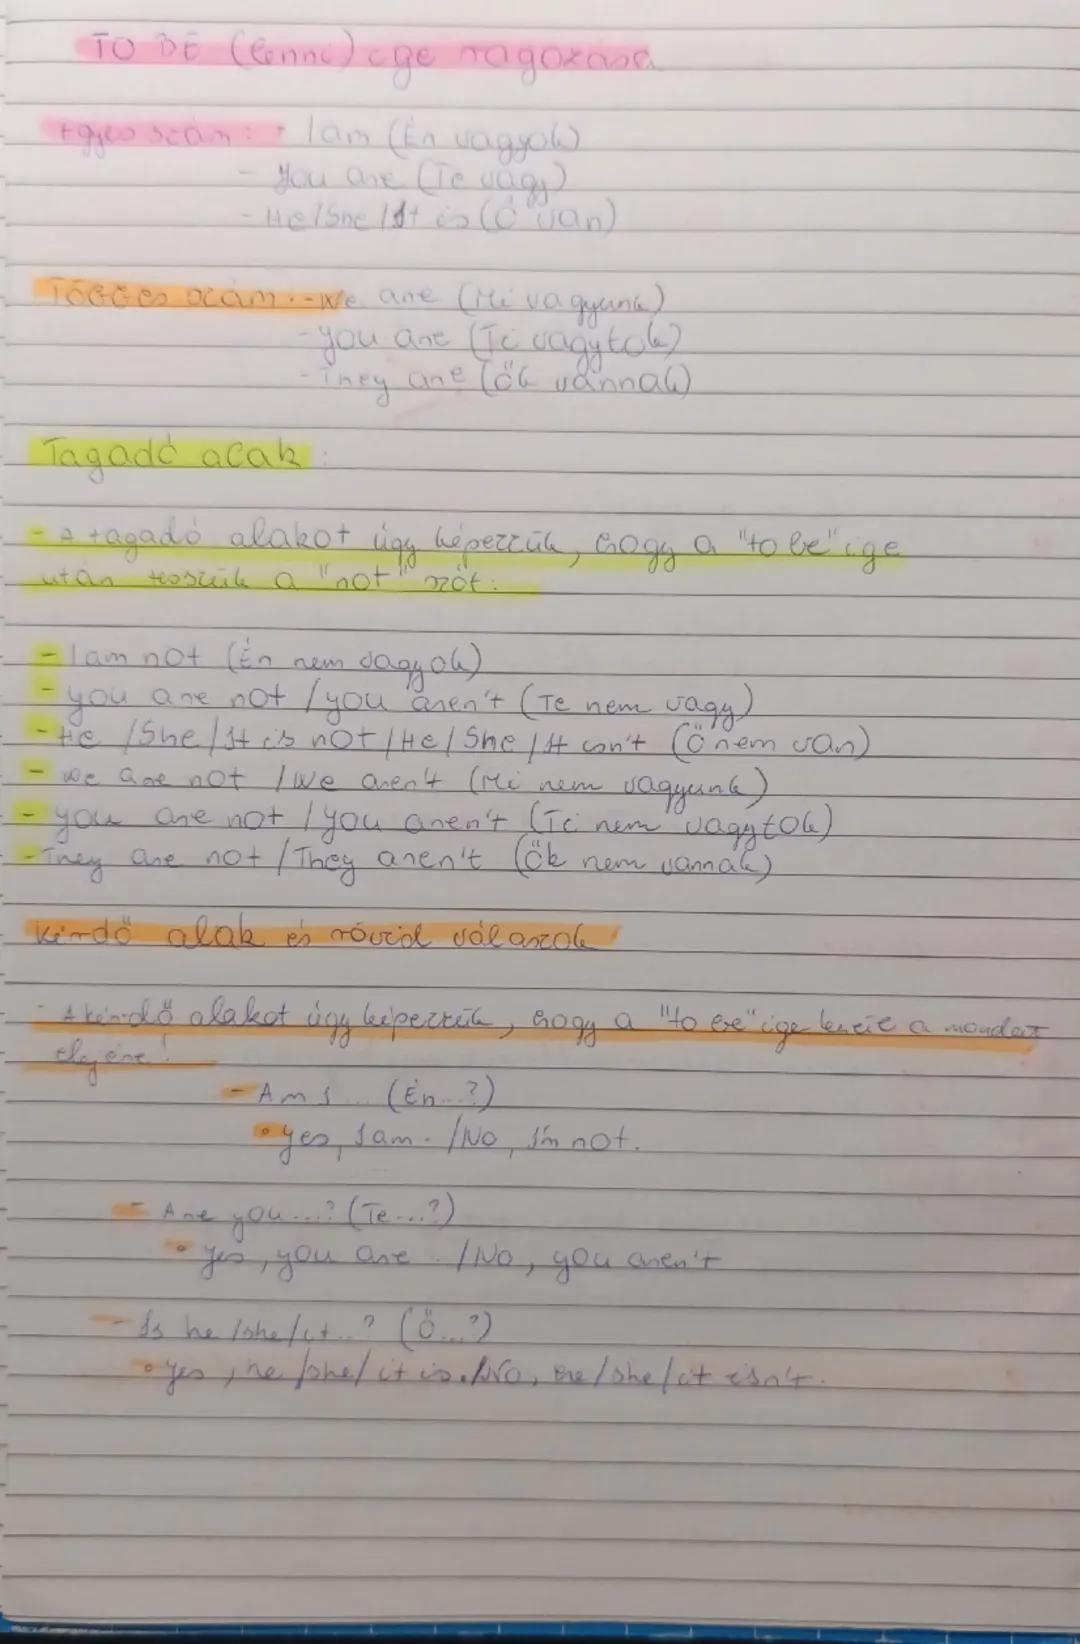 TO BE (lenni) ige ragozása
Egyes szám: - I am (Én vagyok)
- You are (Te vagy)
- He/She/It is (Ő van)
Többes szám: - We are (Mi vagyunk)
- you are (Ti vagytok)
- They are (Ők vannak)
Tagadó alak:
- A tagadó alakot úgy képezzük, hogy a "to be" ige
után tesszük a "not" szót.
- I am not (Én nem vagyok)
- you are not / you aren't (Te nem vagy)
- He /She/It is not / He / She / It isn't (Ő nem van)
- we are not / We aren't (Mi nem vagyunk)
- you are not / you aren't (Ti nem vagytok)
- They are not / They aren't (Ők nem vannak)
Kérdő alak és rövid válaszok
- A kérdő alakot úgy képezzük, hogy a "to be" ige kerül a mondat
elejére!
- Am I ... (Én...?)
• yes, I am. / No, I'm not.
- Are you...? (Te...?)
• yes, you are. / No, you aren't
- Is he /she/it...? (Ő...?)
• yes, he /she/ it is. /No, he /she /it isn't.